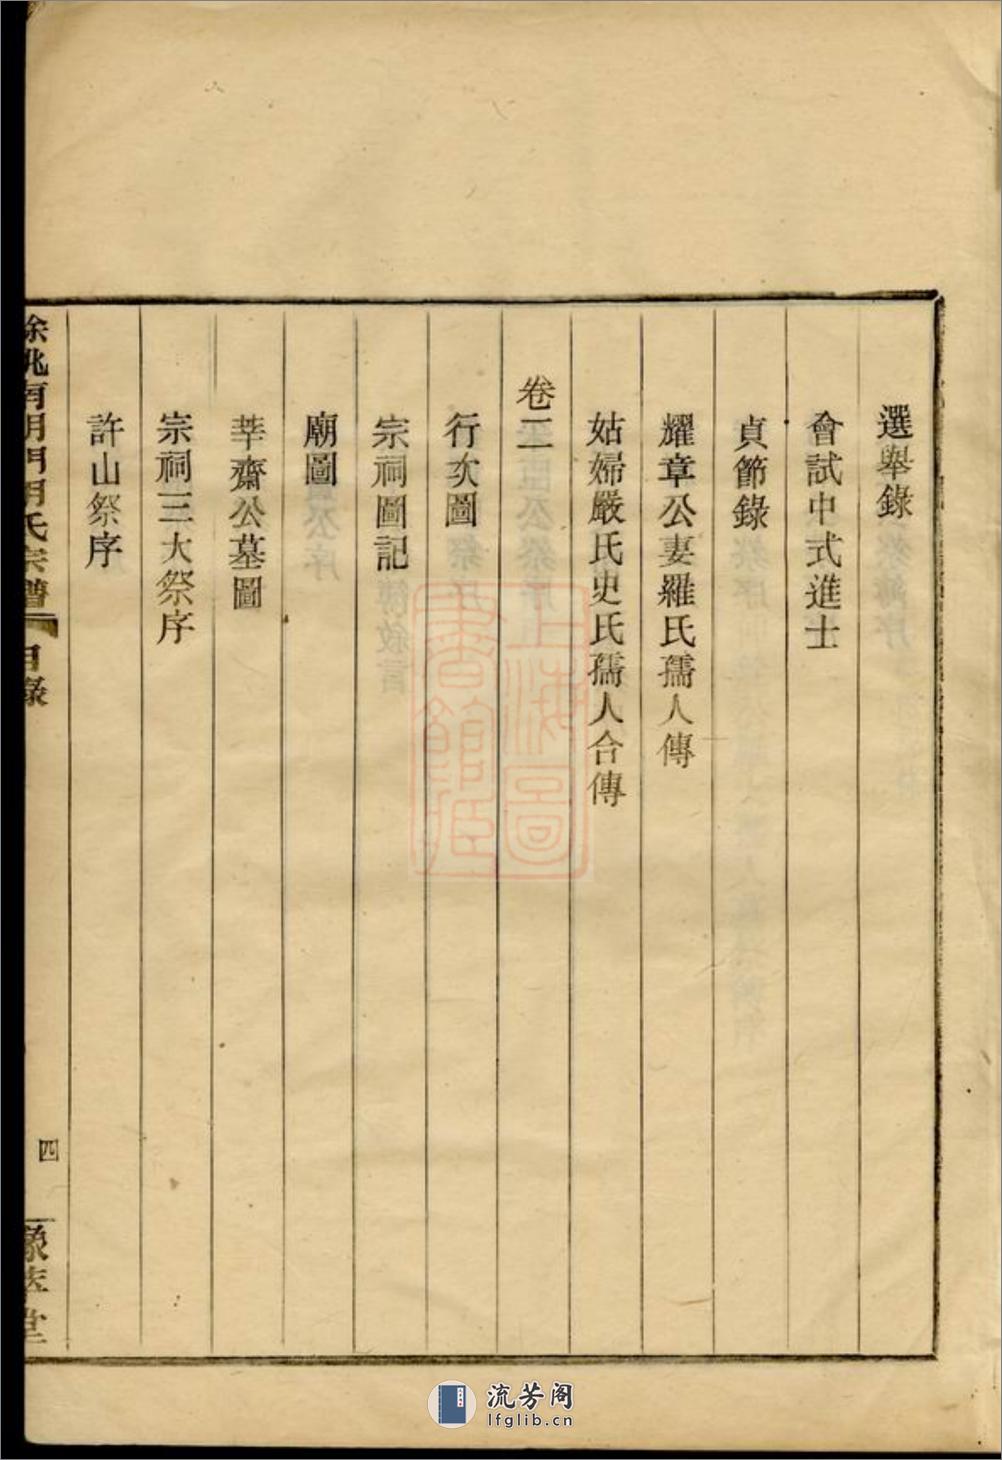 選舉錄
會試中式進士
貞節錄
耀章公妻羅氏孺人傳
姑婦嚴氏史氏孺人合傳
卷二
行次圖
宗祠圖記
廟圖
莘齋公墓圖
宗祠三大祭序
許山祭序
氏宗譜
目錄
四
堂
上海圖
書館藏
流芳阁
lfglib.cn